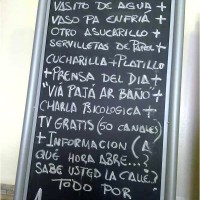 VASITO DE AGUA +
VASO PA ENFRIA +
OTRO ASUCARILLO +
SERVILLETAS DE PAPEL
CUCHARILLA + PLATILLO
+ PRENSA DEL DIA +
"VIÁ PAJÁ AR BAÑO" +
CHARLA PSICOLOGICA +
TV GRATIS (50 CANALES)
+ INFORMACION (A
QUÉ HORA ABRE...?
SABE USTED LA CALLE?)
TODO POR